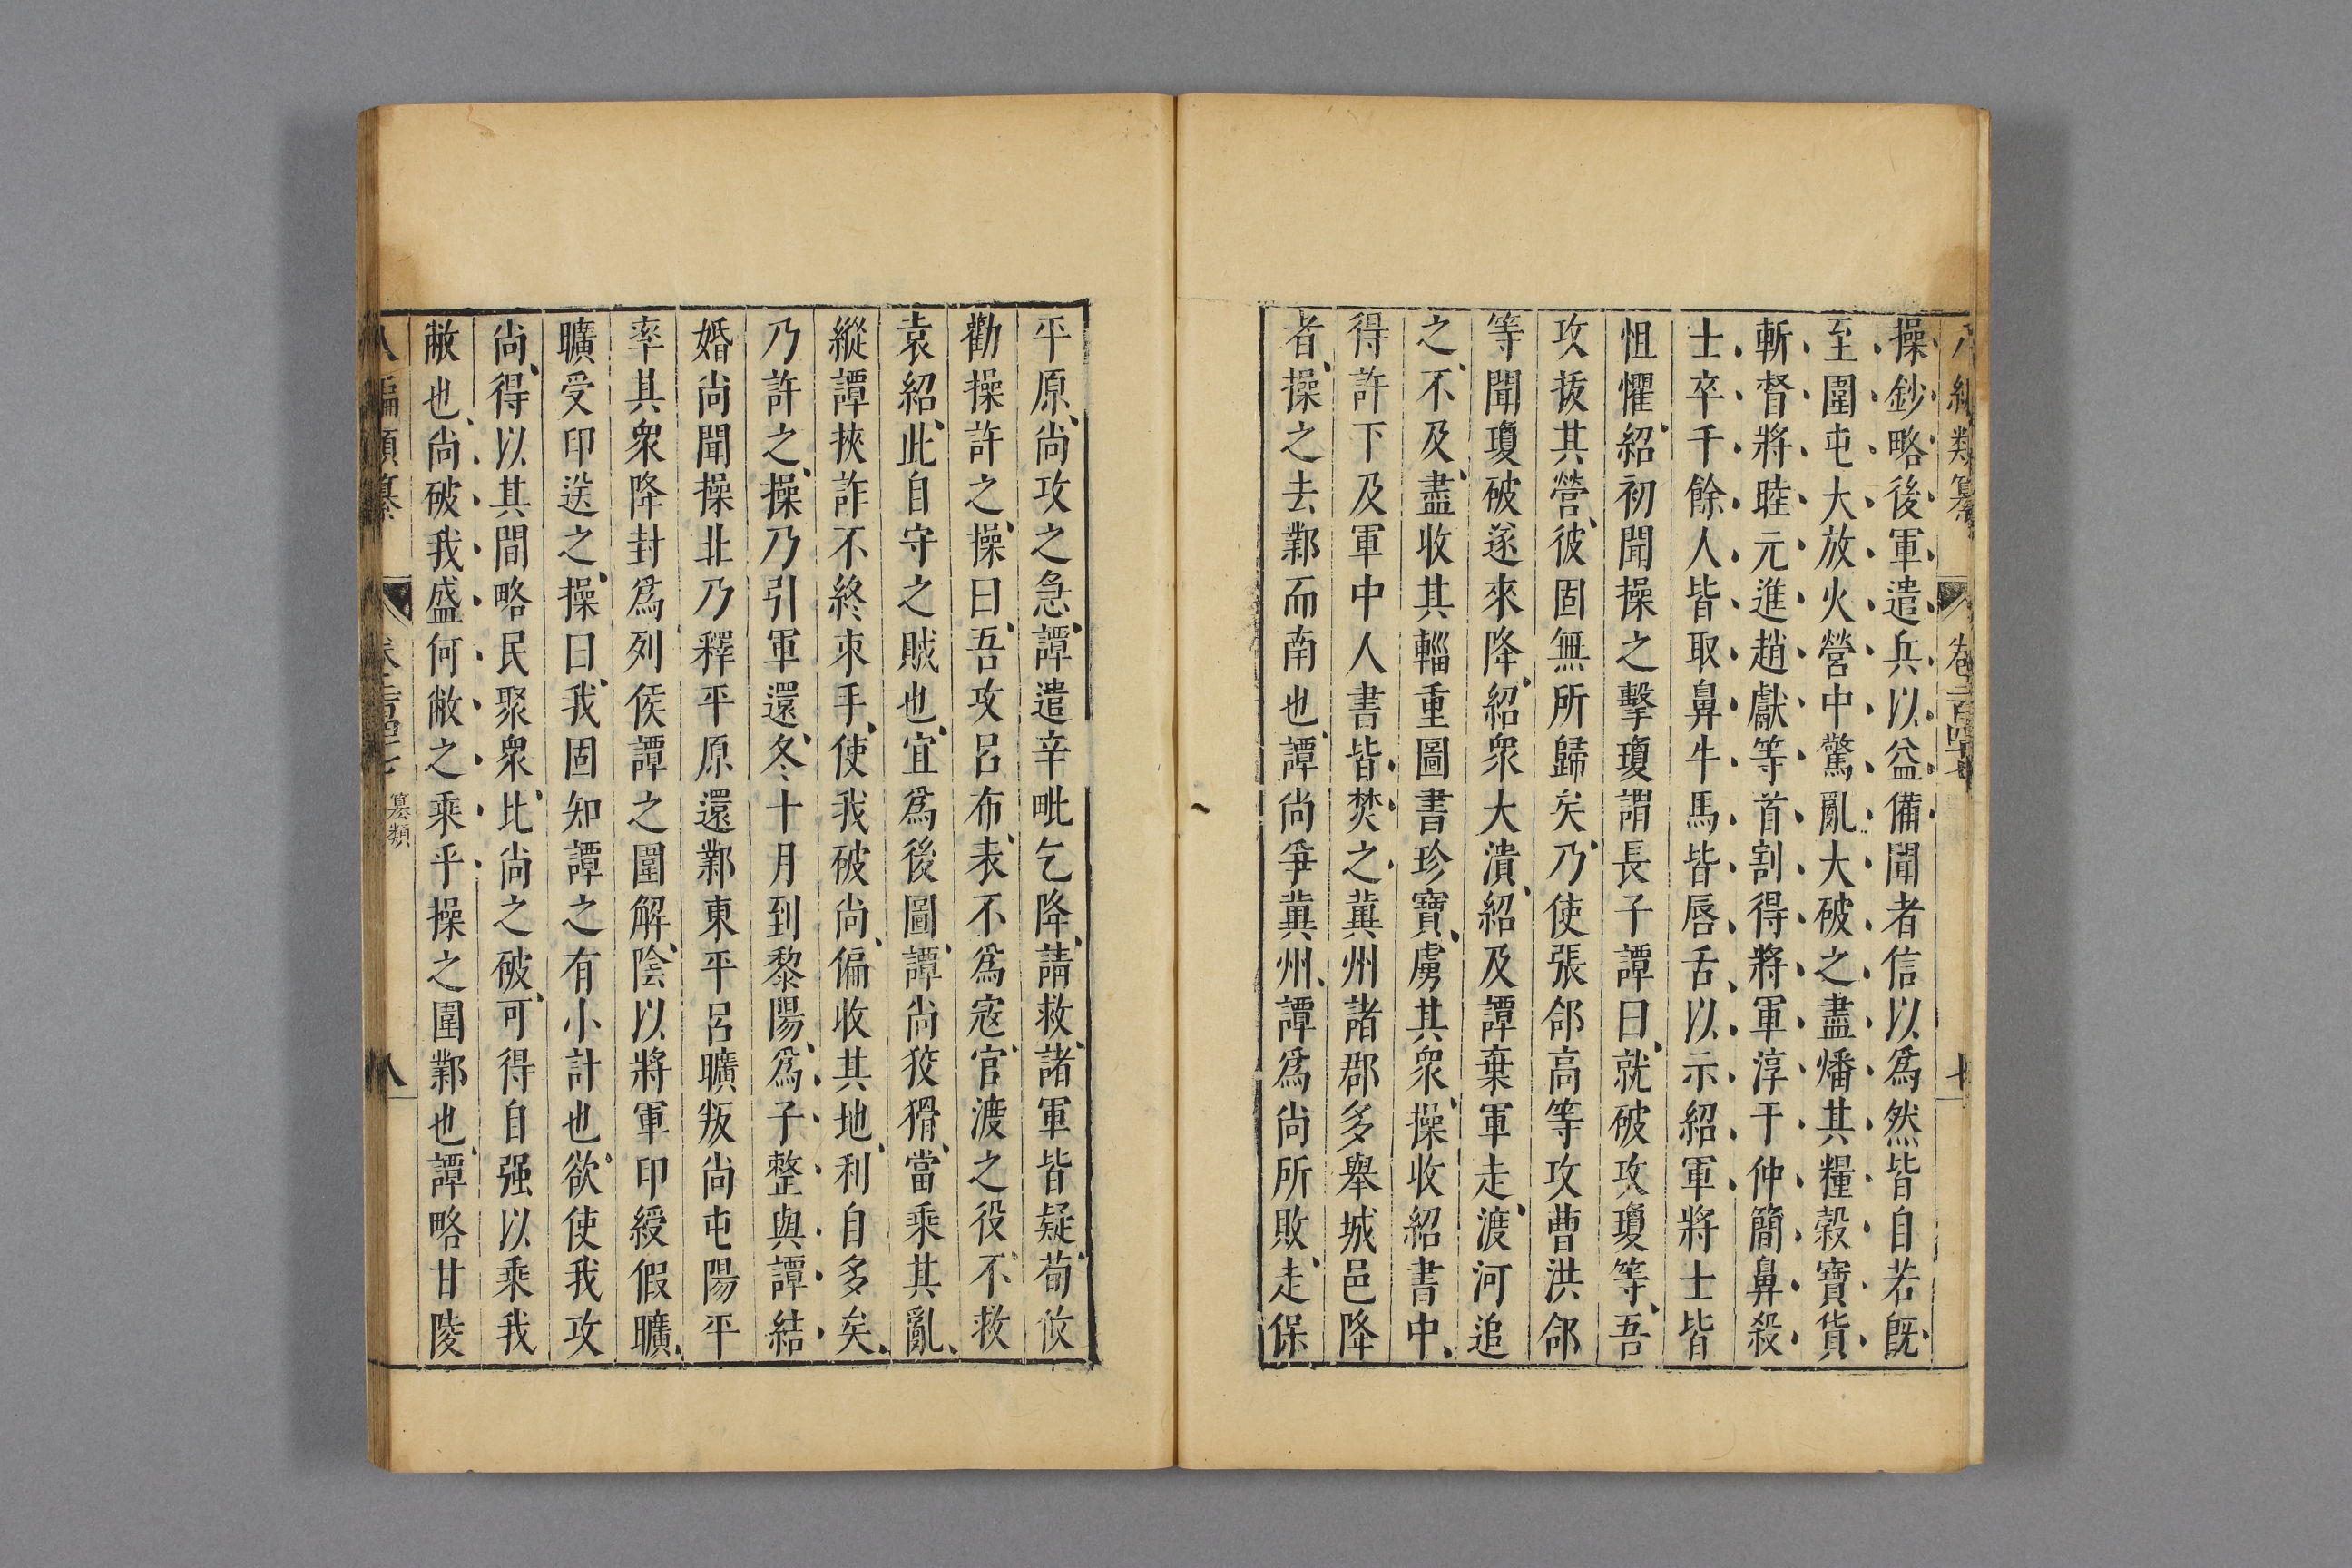 編類纂 卷二百四十七 七
操鈔略後軍遣兵以益備聞者信以爲然皆自若旣
至圍屯大放火營中驚亂大破之盡燔其糧穀寶貨
斬督將眭元進趙獻等首割得將軍淳于仲簡鼻殺
士卒千餘人皆取鼻牛馬皆唇舌以示紹軍將士皆
怛懼紹初聞操之擊瓊謂長子譚曰就破攻瓊等吾
攻拔其營彼固無所歸矣乃使張郃高等攻曹洪郃
等聞瓊破遂來降紹衆大潰紹及譚棄軍走渡河追
之不及盡收其輜重圖書珍寶虜其衆操收紹書中
得許下及軍中人書皆焚之冀州諸郡多舉城邑降
者操之去鄴而南也譚尚爭冀州譚爲尚所敗走保
平原尚攻之急譚遣辛毗乞降請救諸軍皆疑荀攸
勸操許之操曰吾攻呂布表不爲寇官渡之役不救
袁紹此自守之賊也宜爲後圖譚尚狡猾當乘其亂
縱譚挾詐不終束手使我破尚偏收其地利自多矣
乃許之操乃引軍還冬十月到黎陽爲子整與譚結
婚尚聞操北乃釋平原還鄴東平呂曠叛尚屯陽平
率其衆降封爲列侯譚之圍解陰以將軍印綬假曠
曠受印送之操曰我固知譚之有小計也欲使我攻
尚得以其間略民聚衆比尚之破可得自强以乘我
敝也尚破我盛何敝之乘乎操之圍鄴也譚略甘陵
八編類纂 卷二百四十七 纂類 八